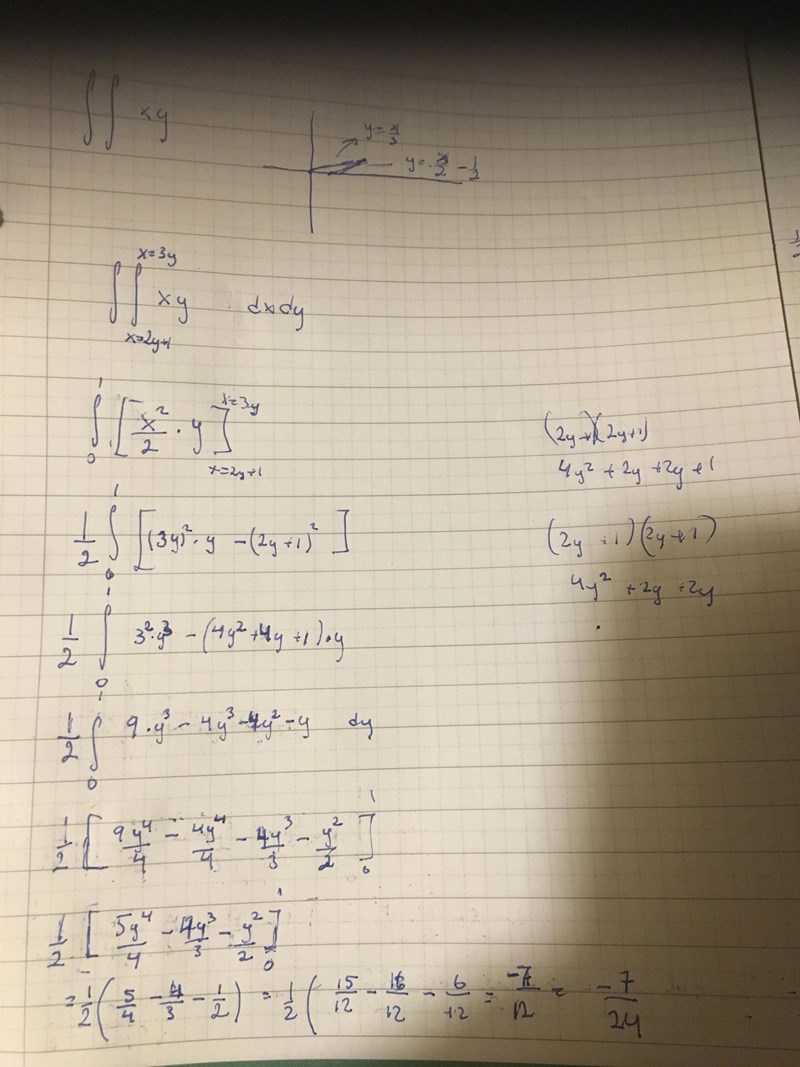 ∫∫ xy
y = x/3
y = x/2 - 1/2
x=3y
∫∫ xy dxdy
x=2y+1
∫₀¹ [x²/2 · y] x=3y x=2y+1
(2y+1)(2y+1)
4y² + 2y + 2y + 1
1/2 ∫₀¹ [(3y)² · y - (2y+1)²]
(2y + 1)(2y+1)
4y² + 2y + 2y
1/2 ∫₀¹ 3²·y³ - (4y² + 4y + 1)·y
1/2 ∫₀¹ 9·y³ - 4y³ - 4y² - y dy
1/2 [9y⁴/4 - 4y⁴/4 - 4y³/3 - y²/2]₀¹
1/2 [5y⁴/4 - 4y³/3 - y²/2]₀¹
= 1/2 (5/4 - 4/3 - 1/2) = 1/2 (15/12 - 16/12 - 6/12 = -7/12 = -7/24